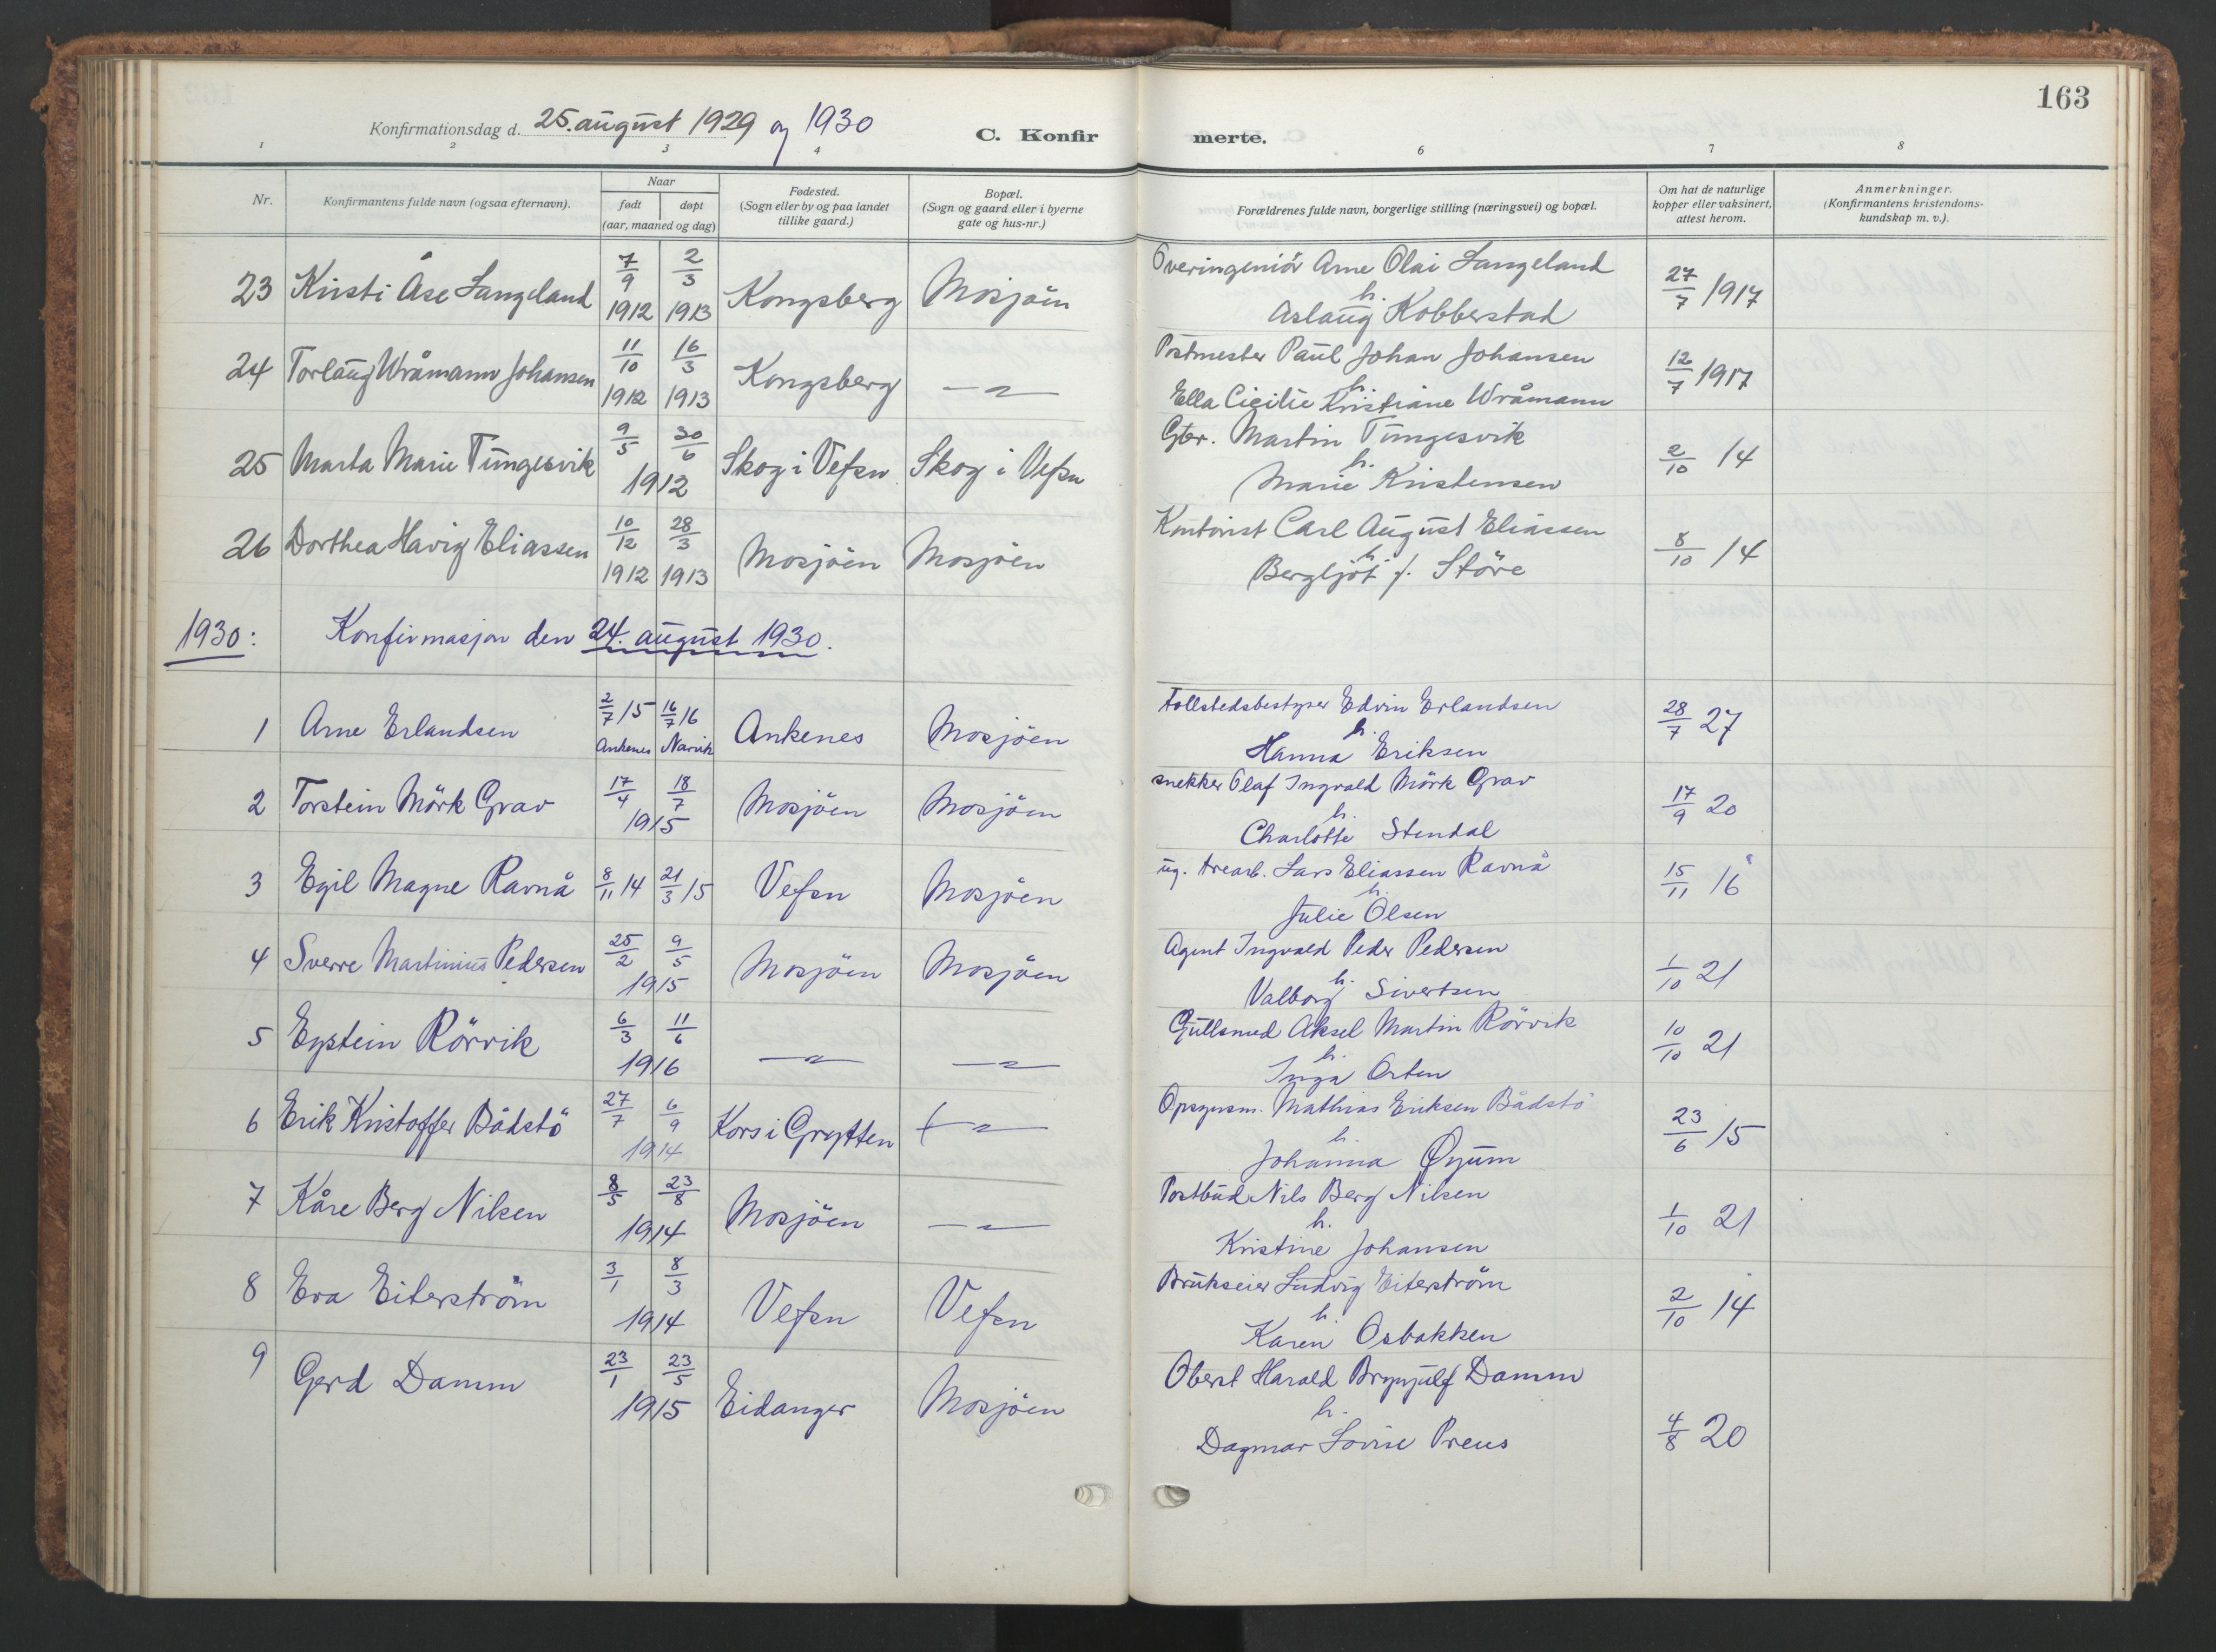 163
Konfirmationsdag d. 25. august 1929 og 1930
C. Konfirmerte.
1 2 3 4 6 7 8
Nr.
Konfirmantens fulde navn (ogsaa efternavn).
Naar
født døpt
(aar, maaned og dag)
Fødested.
(Sogn eller by og paa landet
tillike gaard.)
Bopæl.
(Sogn og gaard eller i byerne
gate og hus-nr.)
Forældrenes fulde navn, borgerlige stilling (næringsvei) og bopæl.
Om hat de naturlige
kopper eller vaksinert,
attest herom.
Anmerkninger.
(Konfirmantens kristendoms-
kundskap m. v.).
23 Kristi Åse Langeland 7/9 1912 2/3 1913 Kongsberg Mosjöen Overingeniör Arne Olai Langeland 27/7 1917
h.
Aslaug Kobberstad
24 Torlaug Wråmann Johansen 11/10 1912 16/3 1913 Kongsberg —"— Postmester Paul Johan Johansen 12/7 1917
h.
Ella Cicilie Kristiane Wråmann
25 Marta Marie Tungesvik 9/5 30/6 1912 Skog i Vefsn Skog i Vefsn Gbr. Martin Tungesvik 2/10 14
h.
Marie Kristensen
26 Dorthea Havig Eliassen 10/12 1912 28/3 1913 Mosjöen Mosjöen Kontorist Carl August Eliassen 8/10 14
h.
Bergljot f. Störe
1930: Konfirmasjon den 24. august 1930.
1 Arne Erlandsen 2/7 15 Ankenes 16/7 16 Narvik Ankenes Mosjöen Tollstedsbestyrer Edvin Erlandsen 28/7 27
h.
Hanna Eriksen
2 Torstein Mörk Grav 17/4 18/7 1915 Mosjöen Mosjöen snekker Olaf Ingvald Mörk Grav 17/9 20
h.
Charlotte Stendal
3 Egil Magne Ravnå 8/11 14 21/3 15 Vefsn Mosjöen ug. trearb. Lars Eliassen Ravnå 15/11 16
h.
Julie Olsen
4 Sverre Martinius Pedersen 25/2 9/5 1915 Mosjöen Mosjöen Agent Ingvald Peder Pedersen 1/10 21
h.
Valborg Sivertsen
5 Eystein Rörvik 6/3 11/6 1916 —"— —"— Gullsmed Aksel Martin Rörvik 10/10 21
h.
Inga Orten
6 Erik Kristoffer Bådstö 27/7 6/9 1914 Kors i Grytten —"— Opsynsm. Mathias Eriksen Bådstö 23/6 15
h.
Johanna Øyum
7 Kåre Berg Nilsen 8/5 23/8 1914 Mosjöen —"— Postbud Nils Berg Nilsen 1/10 21
h.
Kristine Johansen
8 Eva Eiterström 3/1 8/3 1914 Vefsn Vefsn Brukseier Ludvig Eiterström 2/10 14
h.
Karen Osbakken
9 Gerd Damm 23/1 23/5 1915 Eidanger Mosjöen Oberst Harald Brynjulf Damm 4/8 20
h.
Dagmar Lovise Preus